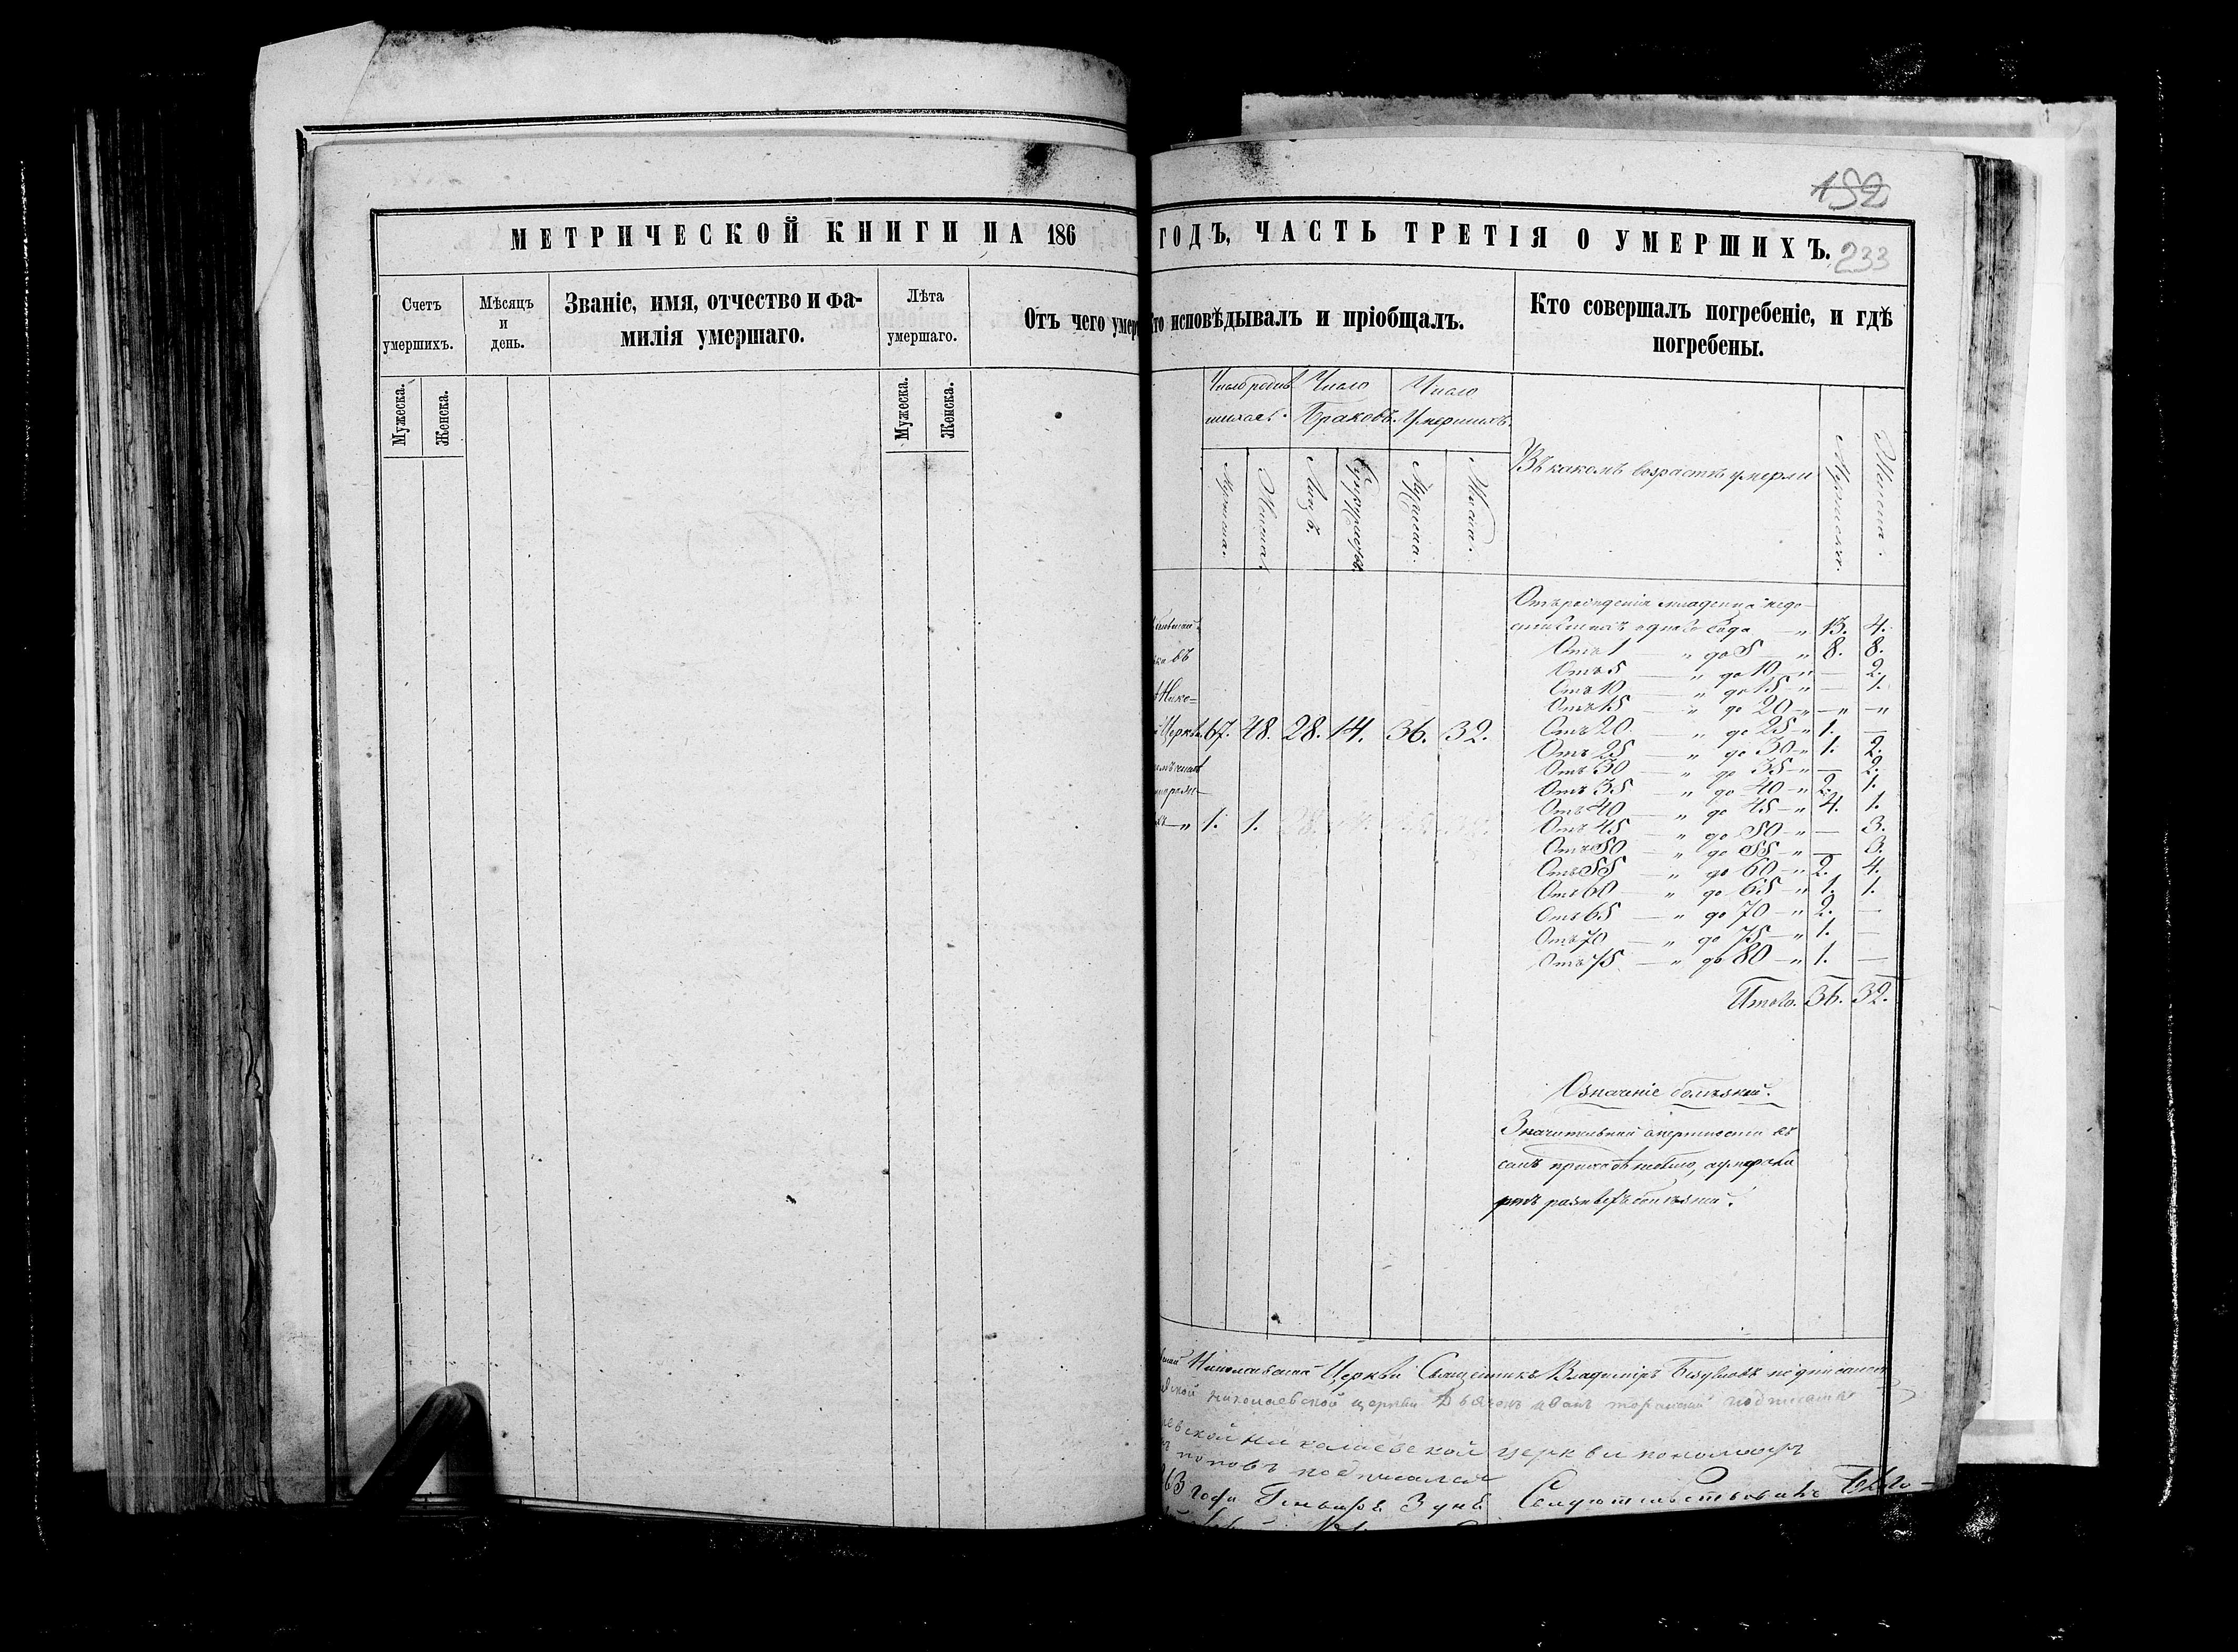 152
МЕТРИЧЕСКОЙ КНИГИ НА 186
Счетъ умершихъ.
Мѣсяцъ и день.
Званіе, имя, отчество и фамилія умершаго.
Лѣта умершаго.
Отъ чего умер
Мужеска.
Женска.
Мужеска.
Женска.
ГОДЪ, ЧАСТЬ ТРЕТІЯ О УМЕРШИХЪ.
233
то исповѣдывалъ и пріобщалъ.
Кто совершалъ погребеніе, и гдѣ погребены.
Число родив
шихся.
Число
Браковъ.
Число
Умершихъ.
Въ какомъ возрастѣ умерли
Мужеска.
Женска.
Мужеска.
Женска.
Мужеска.
Женска.
въ
Нико=
Церкви. 67. 48. 28. 14. 36. 32.
„ 1. 1.
Отъ рожденія младенца недо-
стигшихъ одного года — „ 13. 4.
Отъ 1 — „ до 5 — „ 8. 8.
Отъ 5 — „ до 10 — „ — 2.
Отъ 10 — „ до 15 — „ — 1.
Отъ 15 — „ до 20 — „ — „ — „
Отъ 20 — „ до 25 — „ 1. —
Отъ 25 — „ до 30 — „ 1. 2.
Отъ 30 — „ до 35 — „ — 2.
Отъ 35 — „ до 40 — „ 2. 1.
Отъ 40 — „ до 45 — „ 4. 1.
Отъ 45 — „ до 50 — „ — 3.
Отъ 50 — „ до 55 — „ — 3.
Отъ 55 — „ до 60 — „ 2. 4.
Отъ 60 — „ до 65 — „ 1. 1.
Отъ 65 — „ до 70 — „ 2. —
Отъ 70 — „ до 75 — „ 1. —
Отъ 75 — „ до 80 — „ 1. —
Итого. 36. 32.
Означеніе болѣзней.
Значительной смертности въ
семъ приходѣ небыло, а умерали
отъ разныхъ болѣзней.
Николаевской Церкви Священникъ Владиміръ подписался
Николаевской церкви Дьячокъ Иванъ подписался
Николаевской церкви пономарь
Поповъ подписался
63 года Генваря 3 дня Свидетельствовалъ Благо-